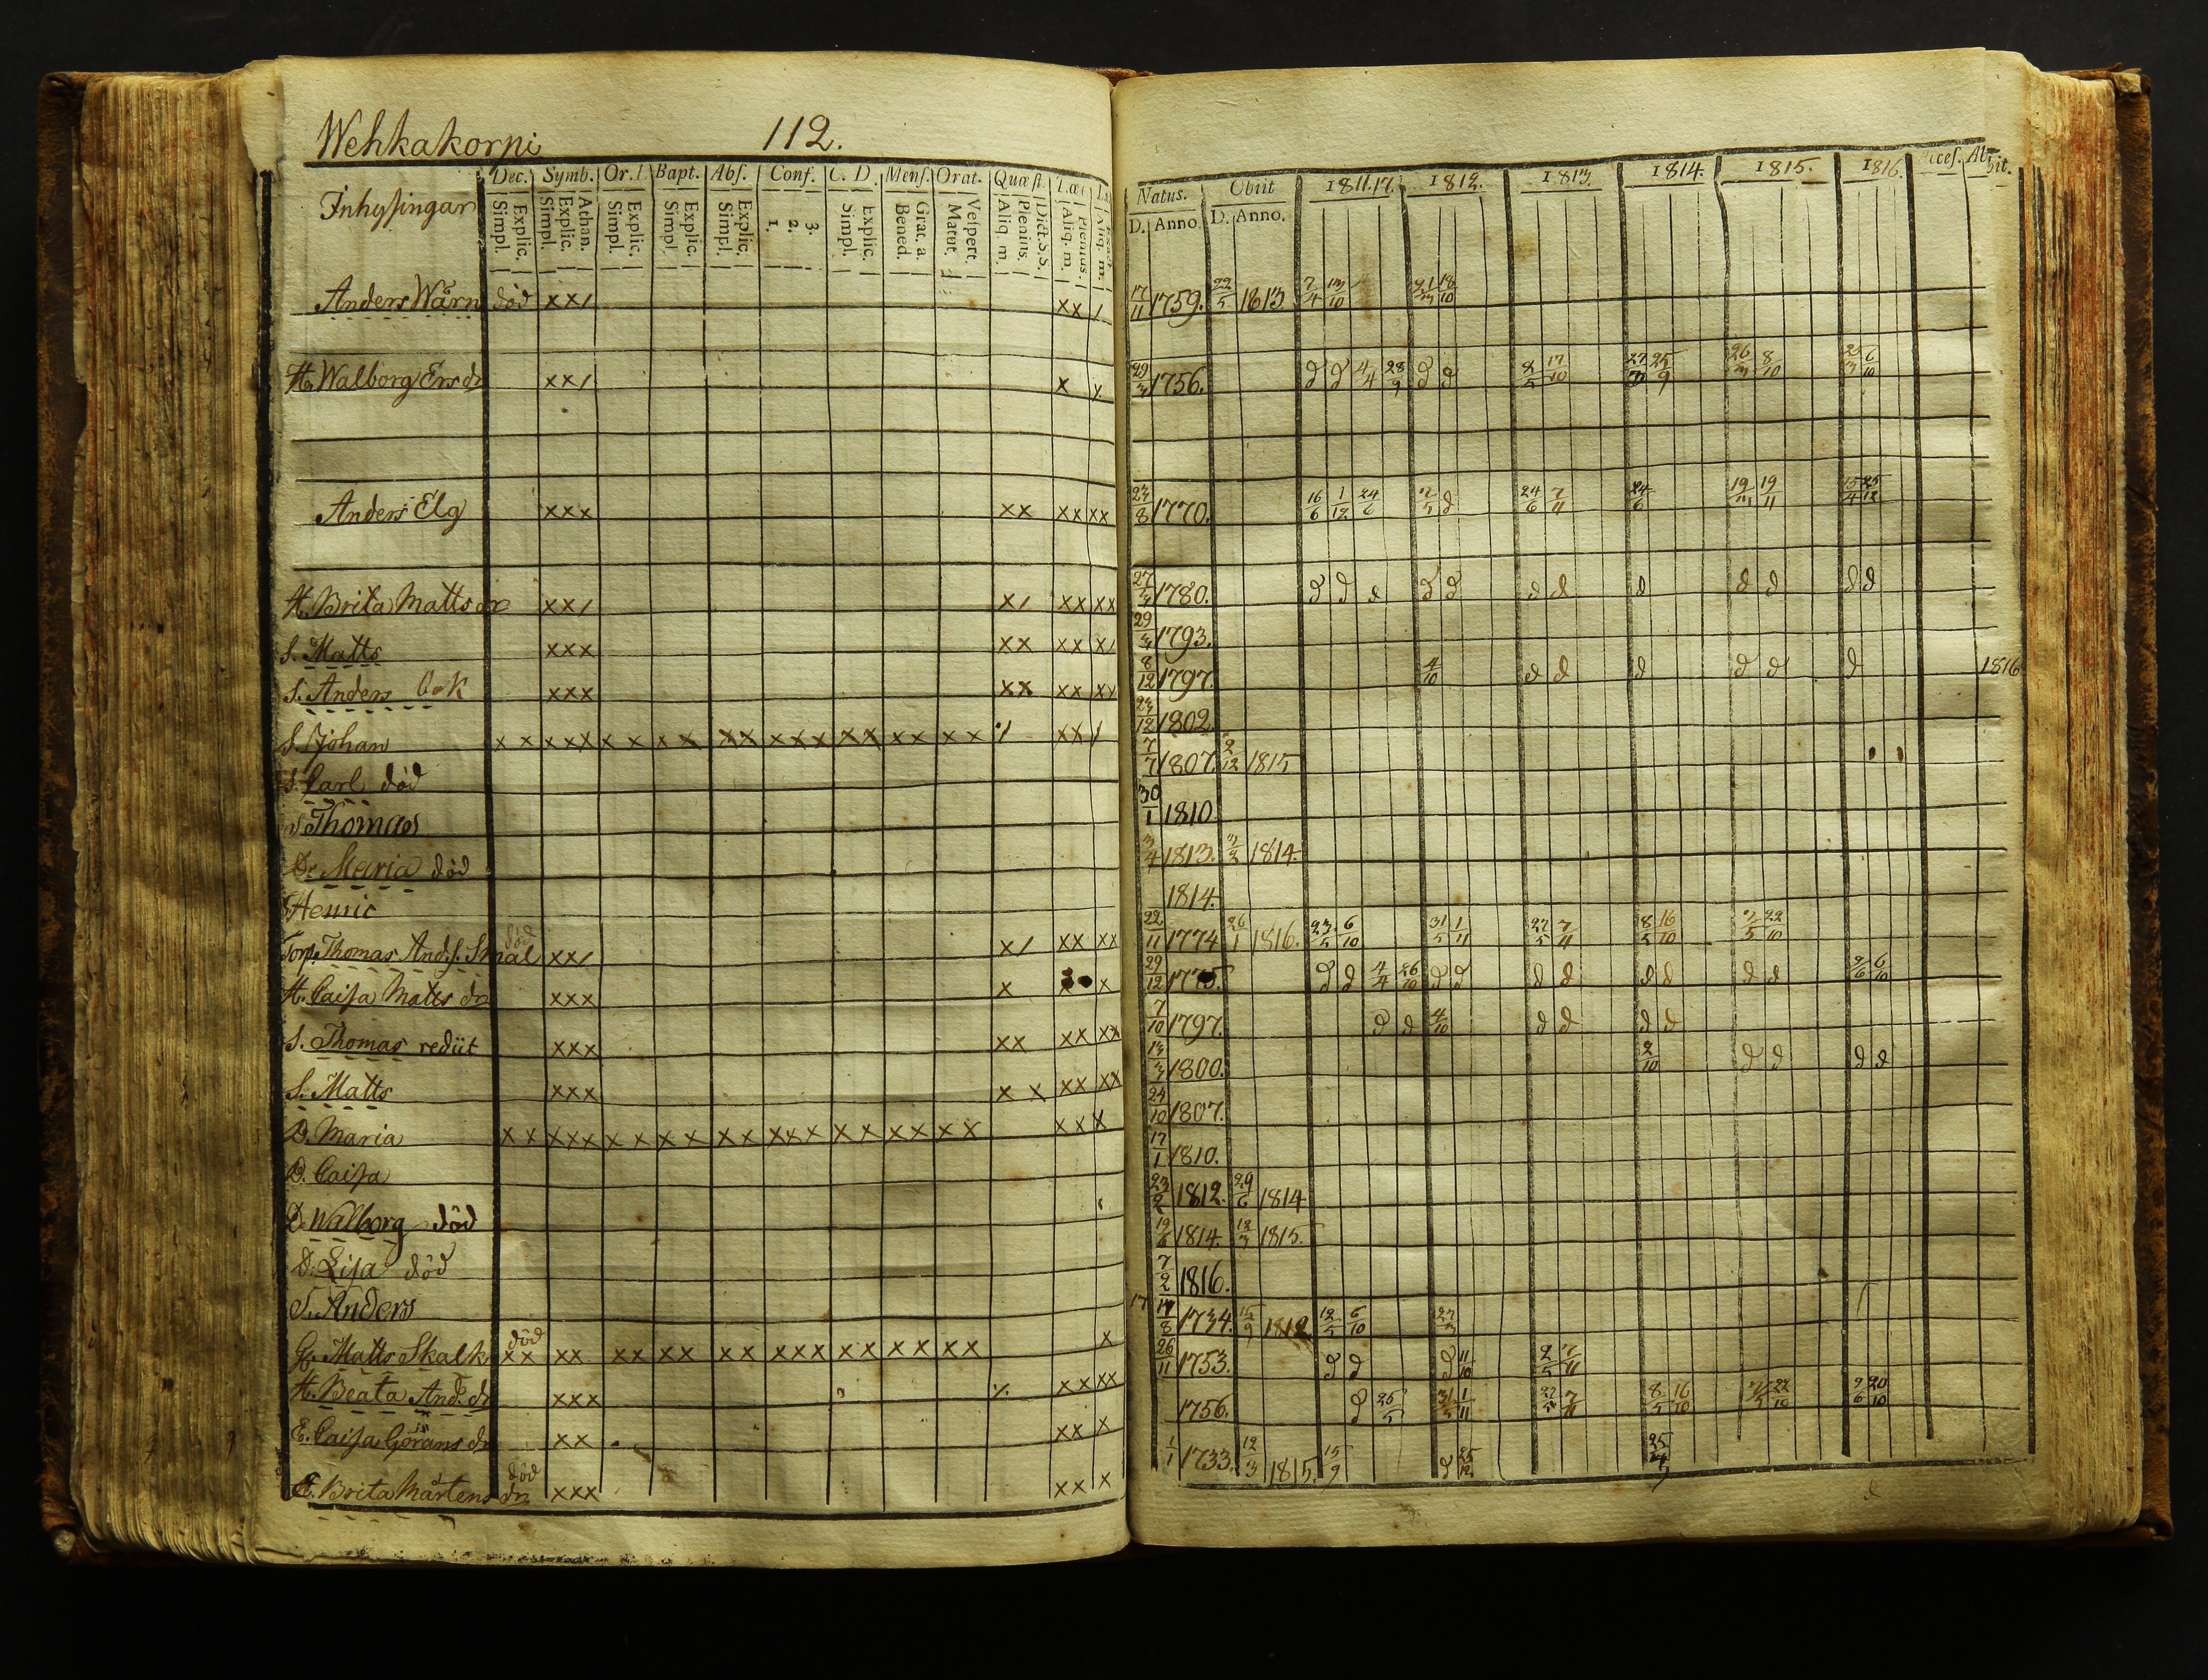 Wehkakorpi 112.
Inhysingar
Dec. Symb. Or. Bapt. Abs. Conf. C. D. Mens. Orat. Quæst.
Simpl. Explic. Simpl. Explic. Athan. Simpl. Explic. Simpl. Explic. Simpl. Explic. 1. 2. 3. Simpl. Explic. Bened. Grat. a. Matut. Vespert. Aliq. m. Plenius. Dict. S. S. Aliq. m. Plenius.
Natus. Obiit 1811.17. 1812. 1813. 1814. 1815. 1816. Ab-
D. Anno D. Anno. bit.
Anders Wärn död xx/ xx / 17/11 1759. 22/5 1813 7/4 13/10 18/10
H. Walborg Ersdr xx/ x x 1756. d d 4/4 28/9 d d 8/5 17/10 25/9 8/10 6/10
Anders Elg xxx xx xx xx 1770. 16/6 1/12 24/6 d 24/6 7/11 24/6 19/11
H. Brita Mattsdr xx/ x/ xx xx 1780. d d d d d d d d d d d d
S. Matts xxx xx xx x/ 1793.
S. Anders xxx xx xx xx 8/12 1797. 4/10 d d d d d d 1816
S. Johan x x xxx x x x x xx xxx xx xx xx xx / 1802
S. Carl död 7/7 1807. 2/12 1815
S Thomas 30/1 1810
Dr Maria död 3/4 1813. 1814.
Henric 1814.
Torp. Thomas Ands. Skal död xx/ x/ xx xx 22/11 1774 26/1 1816. 23/5 6/10 31/5 1/11 7/11 8/5 16/10 22/10
H. Caisa Matts dr xxx x x 29/12 d d 4/4 26/10 d d d d d d d d 9/6 6/10
S. Thomas rediit xxx xx xx xx 7/10 1797. d d 4/10 d d d d
S. Matts xxx x x xx xx 13/3 1800. 2/10 d d d d
D. Maria x x xxx x x x x x x xxx x x x x x x xx x 24/10 1807.
D. Caisa 17/1 1810.
D. Walborg död 23/2 1812. 29/6 1814
D. Lisa död 19/6 1814. 1815.
S. Anders 7/2 1816.
G. Matts Skalk död xx xx xx xx xx xxx xx xx xx x 17 1734. 1812 12/5 6/10
H. Beata And. dr xxx xx xx 26/11 1753. d d d 11/10 2/5 7/11
E. Caisa Görans dr xx xx x 1756. d 31/5 1/11 7/11 8/5 16/10 22/10 9/6 20/10
E. Brita Mårtens dr död xxx xx x 1/1 1733. 12/3 1815. 15/9 d 25/12